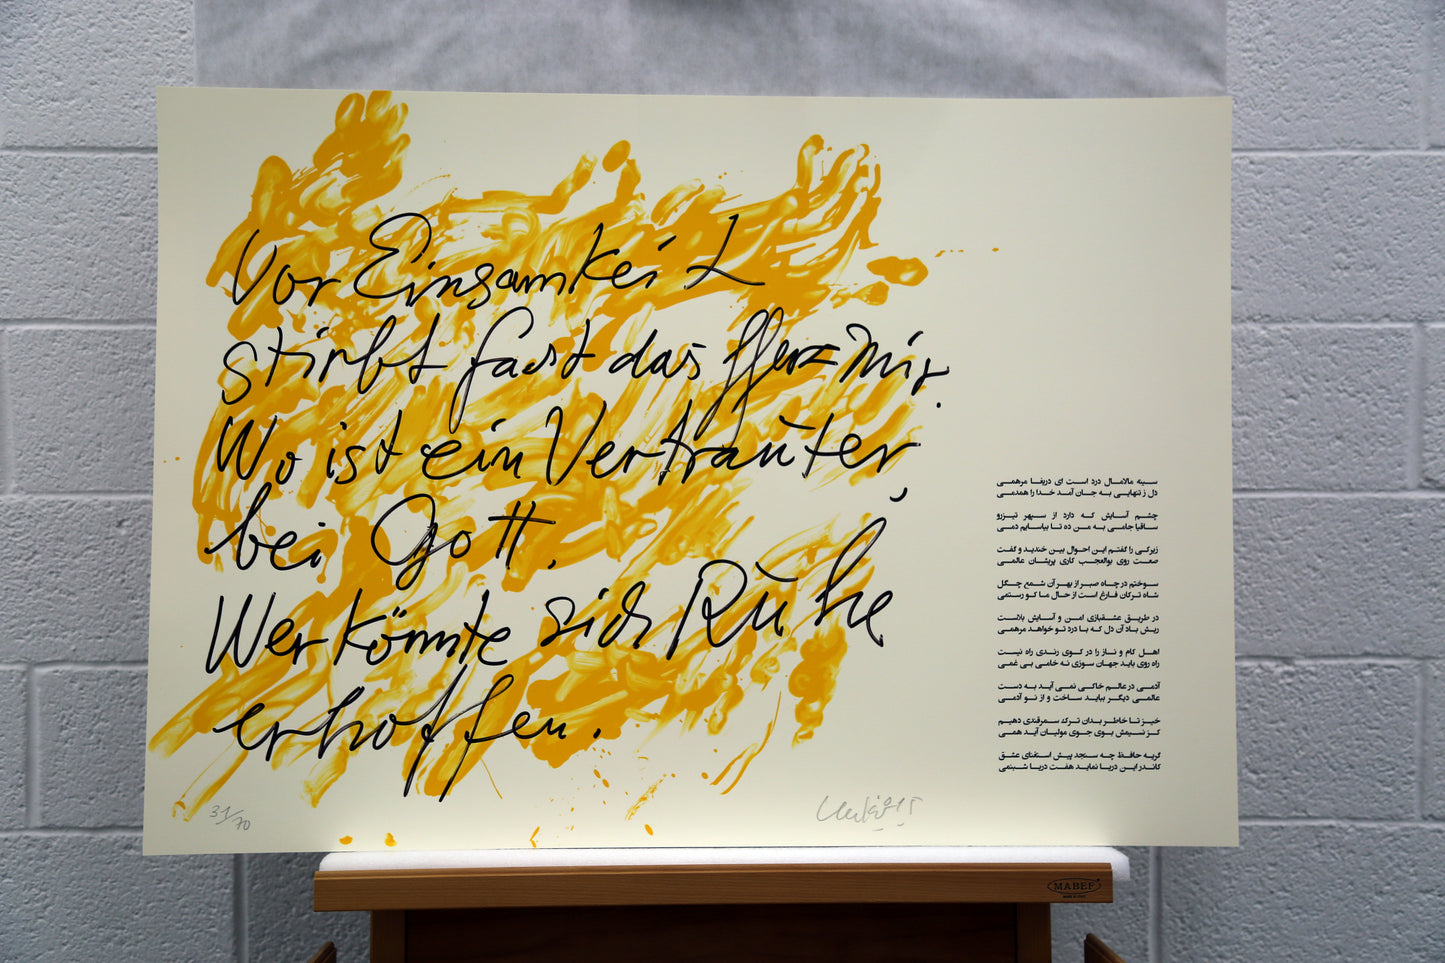 Vor Einsamkeit
stirbt fast das Herz mir.
Wo ist ein Vertrauter,
bei Gott.
Wer könnte sich Ruhe
erhoffen.
سینه مالامال درد است ای دریغا مرهمی
دل ز تنهایی به جان آمد خدا را همدمی
چشم آسایش که دارد از سپهر تیزرو
ساقیا جامی به من ده تا بیاسایم دمی
زیرکی را گفتم این احوال بین خندید و گفت
صعب روزی بوالعجب کاری پریشان عالمی
سوختم در چاه صبر از بهر آن شمع چگل
شاه ترکان فارغ است از حال ما کو رستمی
در طریق عشقبازی امن و آسایش بلاست
ریش باد آن دل که با درد تو خواهد مرهمی
اهل کام و ناز را در کوی رندی راه نیست
راه روی باید جهان سوزی نه خامی بی غمی
آدمی در عالم خاکی نمی آید به دست
عالمی دیگر بباید ساخت و از نو آدمی
خیز تا خاطر بدان ترک سمرقندی دهیم
کز نسیمش بوی جوی مولیان آید همی
گریه حافظ چه سنجد پیش استغنای عشق
کاندر این دریا نماید هفت دریا شبنمی
31/70
MABEF